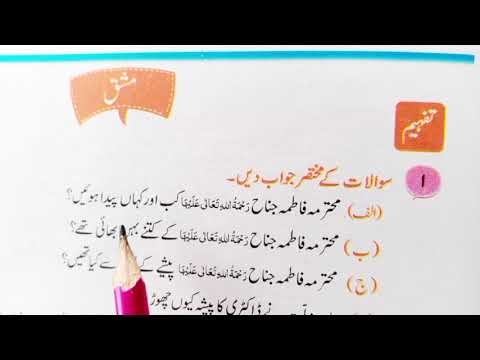 مشق
تفہیم
۱ سوالات کے مختصر جواب دیں۔
(الف) محترمہ فاطمہ جناح رَحْمَۃُ اللہِ تَعَالٰی عَلَیْہَا کب اور کہاں پیدا ہوئیں؟
(ب) محترمہ فاطمہ جناح رَحْمَۃُ اللہِ تَعَالٰی عَلَیْہَا کے کتنے بہن بھائی تھے؟
(ج) محترمہ فاطمہ جناح رَحْمَۃُ اللہِ تَعَالٰی عَلَیْہَا پیشے کے سے کیا تھیں؟
نے ڈاکٹری کا پیشہ کیوں چھوڑ